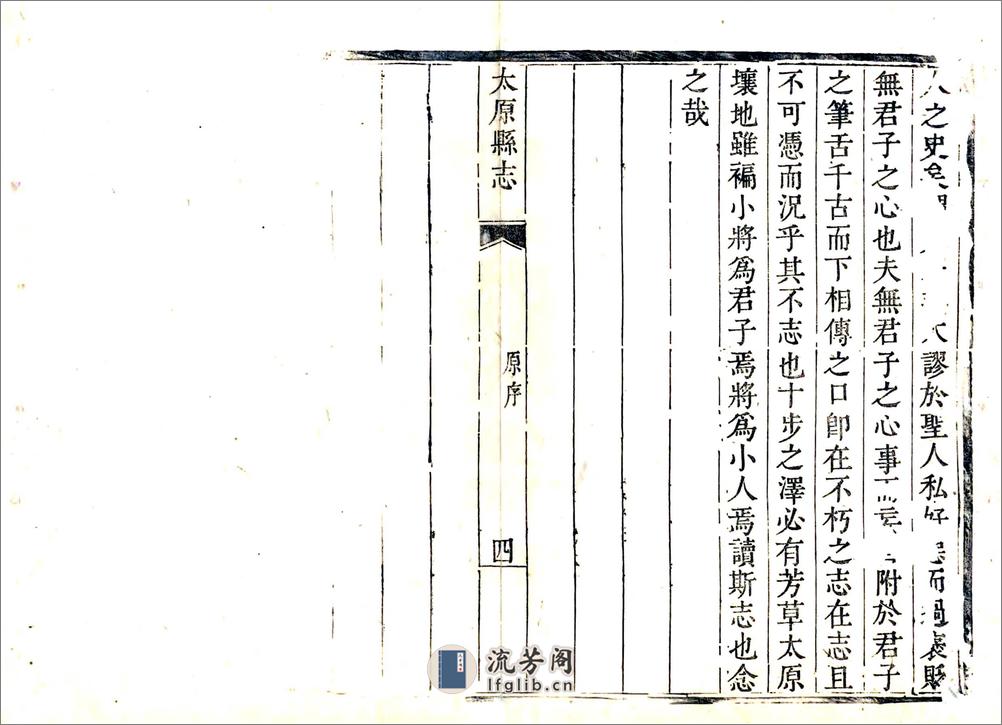 人之史矣
大謬於聖人私好 惡而過褒貶
無君子之心也夫無君子之心事 附於君子
之筆舌千古而下相傳之口卽在不朽之志在志且
不可憑而況乎其不志也十步之澤必有芳草太原
壤地雖褊小將爲君子焉將爲小人焉讀斯志也念
之哉
太原縣志
原序
四
流芳阁
lfglib.cn